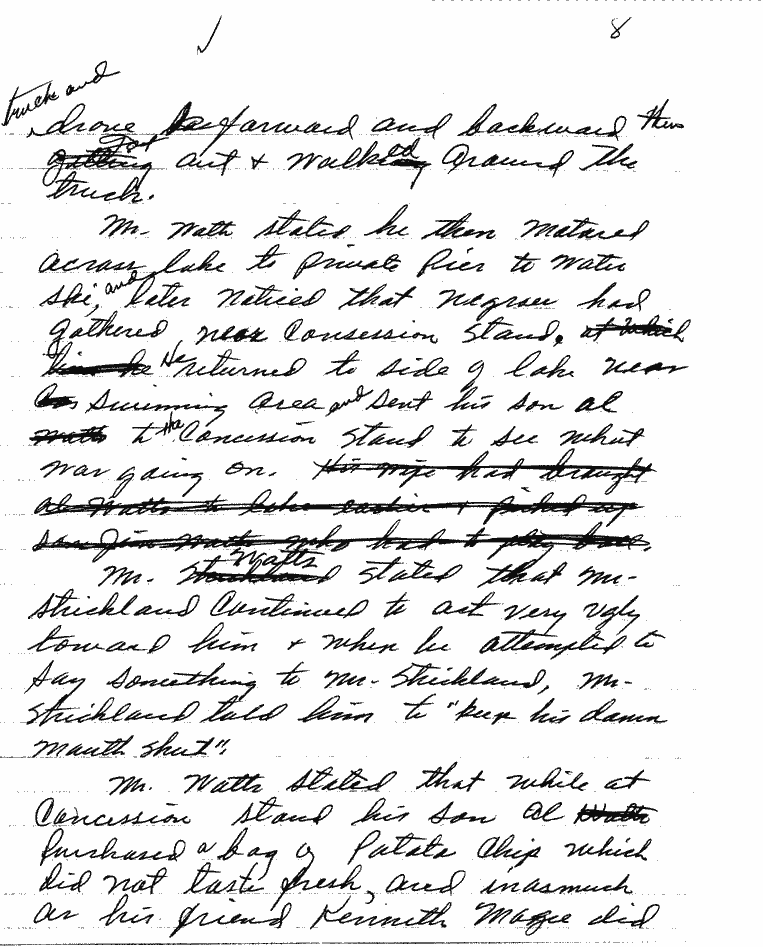 8
truck and
drove forward and backward then
getting Got out & walking ed around the
truck.
Mr. Watts stated he then motored
across lake to private pier to water
ski, and later noticed that negroes had
gathered near Consession Stand. at which
time he He returned to side of lake near
swimming area and sent his son al
Watts to the Concession stand to see what
was going on. His wife had brought
al Watts to lake earlier & picked up
son Jim Watts who had to play ball.
Mr. Strickland Watts stated that Mr.
Strickland continued to act very ugly
toward him & when he attempted to
say something to Mr. Strickland, Mr.
Strickland told him to "keep his damn
mouth shut".
Mr. Watts stated that while at
Concession stand his son al Watts
purchased a bag of Potato Chip which
did not taste fresh, and inasmuch
as his friend Kenneth Magee did